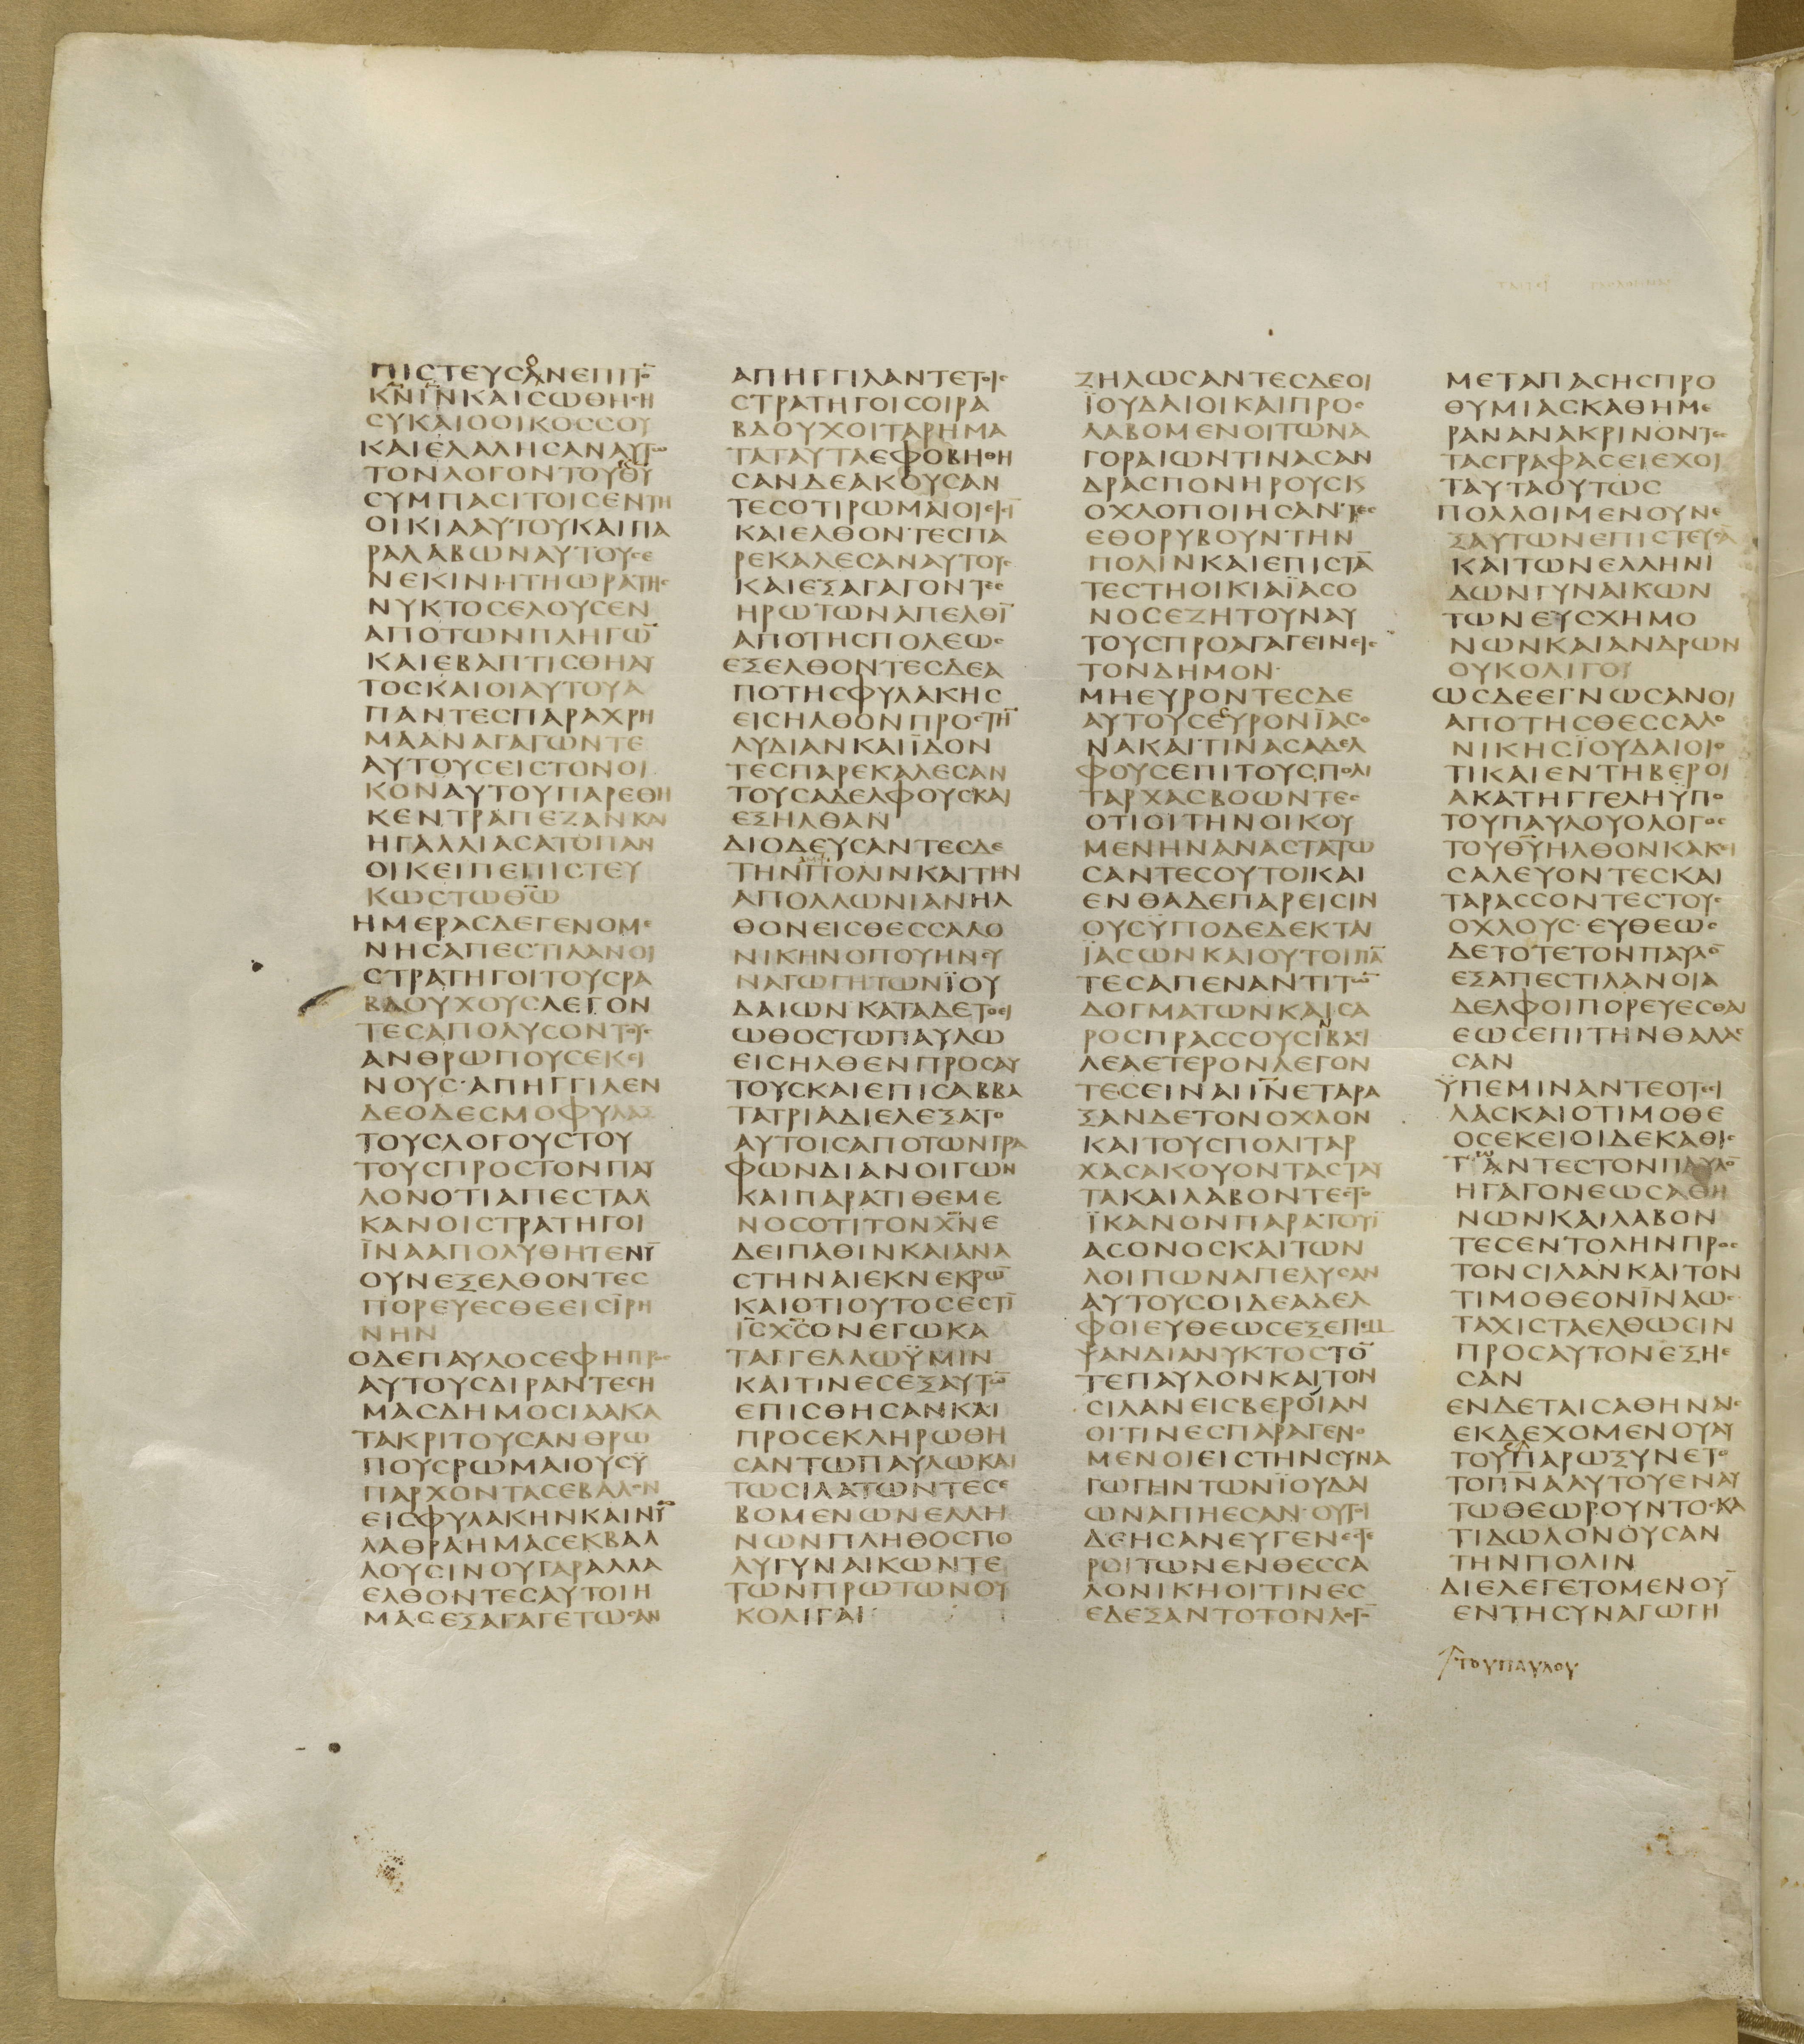 ΠΙϹΤΕΥϹΑΝΕΠΙΤΟ̅
Κ̅Ν̅Ι̅Ν̅ΚΑΙϹΩΘΗϹΗ
ϹΥΚΑΙΟΟΙΚΟϹϹΟΥ
ΚΑΙΕΛΑΛΗϹΑΝΑΥΤΩ
ΤΟΝΛΟΓΟΝΤΟΥΘ̅Υ̅
ϹΥΜΠΑϹΙΤΟΙϹΕΝΤΗ
ΟΙΚΙΑΑΥΤΟΥΚΑΙΠΑ
ΡΑΛΑΒΩΝΑΥΤΟΥϹΕ
ΝΕΚΙΝΗΤΗΩΡΑΤΗϹ
ΝΥΚΤΟϹΕΛΟΥϹΕΝ
ΑΠΟΤΩΝΠΛΗΓΩ̅
ΚΑΙΕΒΑΠΤΙϹΘΗΑΥ
ΤΟϹΚΑΙΟΙΑΥΤΟΥΑ
ΠΑΝΤΕϹΠΑΡΑΧΡΗ
ΜΑΑΝΑΓΑΓΩΝΤΕ
ΑΥΤΟΥϹΕΙϹΤΟΝΟΙ
ΚΟΝΑΥΤΟΥΠΑΡΕΘΗ
ΚΕΝΤΡΑΠΕΖΑΝΚΑΙ
ΗΓΑΛΛΙΑϹΑΤΟΠΑΝ
ΟΙΚΕΙΠΕΠΙϹΤΕΥ
ΚΩϹΤΩΘ̅Ω̅
ΗΜΕΡΑϹΔΕΓΕΝΟΜΕ
ΝΗϹΑΠΕϹΤΙΛΑΝΟΙ
ϹΤΡΑΤΗΓΟΙΤΟΥϹΡΑ
ΒΔΟΥΧΟΥϹΛΕΓΟΝ
ΤΕϹΑΠΟΛΥϹΟΝΤΟΥϹ
ΑΝΘΡΩΠΟΥϹΕΚΕΙ
ΝΟΥϹ·ΑΠΗΓΓΙΛΕΝ
ΔΕΟΔΕϹΜΟΦΥΛΑΞ
ΤΟΥϹΛΟΓΟΥϹΤΟΥ
ΤΟΥϹΠΡΟϹΤΟΝΠΑΥ
ΛΟΝΟΤΙΑΠΕϹΤΑΛ
ΚΑΝΟΙϹΤΡΑΤΗΓΟΙ
ΪΝΑΑΠΟΛΥΘΗΤΕΝΥ̅
ΟΥΝΕΞΕΛΘΟΝΤΕϹ
ΠΟΡΕΥΕϹΘΕΕΙϹΪΡΗ
ΝΗΝ
ΟΔΕΠΑΥΛΟϹΕΦΗΠΡΟϹ
ΑΥΤΟΥϹΔΙΡΑΝΤΕϹΗ
ΜΑϹΔΗΜΟϹΙΑΑΚΑ
ΤΑΚΡΙΤΟΥϹΑΝΘΡΩ
ΠΟΥϹΡΩΜΑΙΟΥϹΫ
ΠΑΡΧΟΝΤΑϹΕΒΑΛΟΝ
ΕΙϹΦΥΛΑΚΗΝΚΑΙΝΥ̅
ΛΑΘΡΑΗΜΑϹΕΚΒΑΛ
ΛΟΥϹΙΝΟΥΓΑΡΑΛΛΑ
ΕΛΘΟΝΤΕϹΑΥΤΟΙΗ
ΜΑϹΕΞΑΓΑΓΕΤΩϹΑΝ
ΑΠΗΓΓΙΛΑΝΤΕΤΟΙϹ
ϹΤΡΑΤΗΓΟΙϹΟΙΡΑ
ΒΔΟΥΧΟΙΤΑΡΗΜΑ
ΤΑΤΑΥΤΑΕΦΟΒΗΘΗ
ϹΑΝΔΕΑΚΟΥϹΑΝ
ΤΕϹΟΤΙΡΩΜΑΙΟΙΕΙϹΙ̅
ΚΑΙΕΛΘΟΝΤΕϹΠΑ
ΡΕΚΑΛΕϹΑΝΑΥΤΟΥϹ
ΚΑΙΕΞΑΓΑΓΟΝΤΕϹ
ΗΡΩΤΩΝΑΠΕΛΘΙ̅
ΑΠΟΤΗϹΠΟΛΕΩϹ
ΕΞΕΛΘΟΝΤΕϹΔΕΑ
ΠΟΤΗϹΦΥΛΑΚΗϹ
ΕΙϹΗΛΘΟΝΠΡΟϹΤΗ̅
ΛΥΔΙΑΝΚΑΙΪΔΟΝ
ΤΕϹΠΑΡΕΚΑΛΕϹΑΝ
ΤΟΥϹΑΔΕΛΦΟΥϹΚΑΙ
ΕΞΗΛΘΑΝ
ΔΙΟΔΕΥϹΑΝΤΕϹΔΕ
ΤΗΝΠΟΛΙΝΚΑΙΤΗΝ
ΑΠΟΛΛΩΝΙΑΝΗΛ
ΘΟΝΕΙϹΘΕϹϹΑΛΟ
ΝΙΚΗΝΟΠΟΥΗΝϹΥ
ΝΑΓΩΓΗΤΩΝΪΟΥ
ΔΑΙΩΝΚΑΤΑΔΕΤΟΕΙ
ΩΘΟϹΤΩΠΑΥΛΩ
ΕΙϹΗΛΘΕΝΠΡΟϹΑΥ
ΤΟΥϹΚΑΙΕΠΙϹΑΒΒΑ
ΤΑΤΡΙΑΔΙΕΛΕΞΑΤΟ
ΑΥΤΟΙϹΑΠΟΤΩΝΓΡΑ
ΦΩΝΔΙΑΝΟΙΓΩΝ
ΚΑΙΠΑΡΑΤΙΘΕΜΕ
ΝΟϹΟΤΙΤΟΝΧ̅Ν̅Ε
ΔΕΙΠΑΘΙΝΚΑΙΑΝΑ
ϹΤΗΝΑΙΕΚΝΕΚΡΩ̅
ΚΑΙΟΤΙΟΥΤΟϹΕϹΤΙ̅
Ι̅Ϲ̅Χ̅Ϲ̅ΟΝΕΓΩΚΑ
ΤΑΓΓΕΛΛΩΫΜΙΝ
ΚΑΙΤΙΝΕϹΕΞΑΥΤΩ̅
ΕΠΙϹΘΗϹΑΝΚΑΙ
ΠΡΟϹΕΚΛΗΡΩΘΗ
ϹΑΝΤΩΠΑΥΛΩΚΑΙ
ΤΩϹΙΛΑΤΩΝΤΕϹΕ
ΒΟΜΕΝΩΝΕΛΛΗ
ΝΩΝΠΛΗΘΟϹΠΟ
ΛΥΓΥΝΑΙΚΩΝΤΕ
ΤΩΝΠΡΩΤΩΝΟΥ
ΚΟΛΙΓΑΙ
ΖΗΛΩϹΑΝΤΕϹΔΕΟΙ
ΪΟΥΔΑΙΟΙΚΑΙΠΡΟϹ
ΛΑΒΟΜΕΝΟΙΤΩΝΑ
ΓΟΡΑΙΩΝΤΙΝΑϹΑΝ
ΔΡΑϹΠΟΝΗΡΟΥϹΚϚ
ΟΧΛΟΠΟΙΗϹΑΝΤΕϹ
ΕΘΟΡΥΒΟΥΝΤΗΝ
ΠΟΛΙΝΚΑΙΕΠΙϹΤΑ̅
ΤΕϹΤΗΟΙΚΙΑΪΑϹΟ
ΝΟϹΕΖΗΤΟΥΝΑΥ
ΤΟΥϹΠΡΟΑΓΑΓΕΙΝΕΙϹ
ΤΟΝΔΗΜΟΝ·
ΜΗΕΥΡΟΝΤΕϹΔΕ
ΑΥΤΟΥϹΕΥΡΟΝΪΑϹΟ
ΝΑΚΑΙΤΙΝΑϹΑΔΕΛ
ΦΟΥϹΕΠΙΤΟΥϹΠΟΛΙ
ΤΑΡΧΑϹΒΟΩΝΤΕϹ
ΟΤΙΟΙΤΗΝΟΙΚΟΥ
ΜΕΝΗΝΑΝΑϹΤΑΤΩ
ϹΑΝΤΕϹΟΥΤΟΙΚΑΙ
ΕΝΘΑΔΕΠΑΡΕΙϹΙΝ
ΟΥϹΫΠΟΔΕΔΕΚΤΑΙ
ΪΑϹΩΝΚΑΙΟΥΤΟΙΠΑ̅
ΤΕϹΑΠΕΝΑΝΤΙΤΩ̅
ΔΟΓΜΑΤΩΝΚΑΙϹΑ
ΡΟϹΠΡΑϹϹΟΥϹΙΝΒΑϹΙ
ΛΕΑΕΤΕΡΟΝΛΕΓΟΝ
ΤΕϹΕΙΝΑΙΙ̅Ν̅ΕΤΑΡΑ
ΞΑΝΔΕΤΟΝΟΧΛΟΝ
ΚΑΙΤΟΥϹΠΟΛΙΤΑΡ
ΧΑϹΑΚΟΥΟΝΤΑϹΤΑΥ
ΤΑΚΑΙΛΑΒΟΝΤΕϹΤΟ
ΪΚΑΝΟΝΠΑΡΑΤΟΥΪ
ΑϹΟΝΟϹΚΑΙΤΩΝ
ΛΟΙΠΩΝΑΠΕΛΥϹΑΝ
ΑΥΤΟΥϹΟΙΔΕΑΔΕΛ
ΦΟΙΕΥΘΕΩϹΕΞΕΠΕΜ
ΨΑΝΔΙΑΝΥΚΤΟϹΤΟ̅
ΤΕΠΑΥΛΟΝΚΑΙΤΟΝ
ϹΙΛΑΝΕΙϹΒΕΡΟΙΑΝ
ΟΙΤΙΝΕϹΠΑΡΑΓΕΝΟ
ΜΕΝΟΙΕΙϹΤΗΝϹΥΝΑ
ΓΩΓΗΝΤΩΝΪΟΥΔΑΙ
ΩΝΑΠΗΕϹΑΝ·ΟΥΤΟΙ
ΔΕΗϹΑΝΕΥΓΕΝΕϹΤΕ
ΡΟΙΤΩΝΕΝΘΕϹϹΑ
ΛΟΝΙΚΗΟΙΤΙΝΕϹ
ΕΔΕΞΑΝΤΟΤΟΝΛΟΓΟ̅
ΜΕΤΑΠΑϹΗϹΠΡΟ
ΘΥΜΙΑϹΚΑΘΗΜΕ
ΡΑΝΑΝΑΚΡΙΝΟΝΤΕϹ
ΤΑϹΓΡΑΦΑϹΕΙΕΧΟΙ
ΤΑΥΤΑΟΥΤΩϹ
ΠΟΛΛΟΙΜΕΝΟΥΝΕ
ΞΑΥΤΩΝΕΠΙϹΤΕΥϹΑ̅
ΚΑΙΤΩΝΕΛΛΗΝΙ
ΔΩΝΓΥΝΑΙΚΩΝ
ΤΩΝΕΥϹΧΗΜΟ
ΝΩΝΚΑΙΑΝΔΡΩΝ
ΟΥΚΟΛΙΓΟΙ
ΩϹΔΕΕΓΝΩϹΑΝΟΙ
ΑΠΟΤΗϹΘΕϹϹΑΛΟ
ΝΙΚΗϹΪΟΥΔΑΙΟΙΟ
ΤΙΚΑΙΕΝΤΗΒΕΡΟΙ
ΑΚΑΤΗΓΓΕΛΗΫΠΟ
ΤΟΥΠΑΥΛΟΥΟΛΟΓΟϹ
ΤΟΥΘ̅Υ̅ΗΛΘΟΝΚΑΚΕΙ
ϹΑΛΕΥΟΝΤΕϹΚΑΙ
ΤΑΡΑϹϹΟΝΤΕϹΤΟΥϹ
ΟΧΛΟΥϹ·ΕΥΘΕΩϹ
ΔΕΤΟΤΕΤΟΝΠΑΥΛΟ̅
ΕΞΑΠΕϹΤΙΛΑΝΟΙΑ
ΔΕΛΦΟΙΠΟΡΕΥΕϹΘΑΙ
ΕΩϹΕΠΙΤΗΝΘΑΛΑϹ
ϹΑΝ
ΫΠΕΜΙΝΑΝΤΕΟΤΕϹΙ
ΛΑϹΚΑΙΟΤΙΜΟΘΕ
ΟϹΕΚΕΙΟΙΔΕΚΑΘΙϹ
ΤΑΝΤΕϹΤΟΝΠΑΥΛΟ̅
ΗΓΑΓΟΝΕΩϹΑΘΗ
ΝΩΝΚΑΙΛΑΒΟΝ
ΤΕϹΕΝΤΟΛΗΝΠΡΟϹ
ΤΟΝϹΙΛΑΝΚΑΙΤΟΝ
ΤΙΜΟΘΕΟΝΪΝΑΩϹ
ΤΑΧΙϹΤΑΕΛΘΩϹΙΝ
ΠΡΟϹΑΥΤΟΝΕΞΗΕ
ϹΑΝ
ΕΝΔΕΤΑΙϹΑΘΗΝΑΙϹ
ΕΚΔΕΧΟΜΕΝΟΥΑΥ
ΤΟΥΠΑΡΩΞΥΝΕΤΟ
ΤΟΠ̅Ν̅ΑΑΥΤΟΥΕΝΑΥ
ΤΩΘΕΩΡΟΥΝΤΟϹΚΑ
ΤΙΔΩΛΟΝΟΥϹΑΝ
ΤΗΝΠΟΛΙΝ
ΔΙΕΛΕΓΕΤΟΜΕΝΟΥ̅
ΕΝΤΗϹΥΝΑΓΩΓΗ
ΤΟΥΠΑΥΛΟΥ